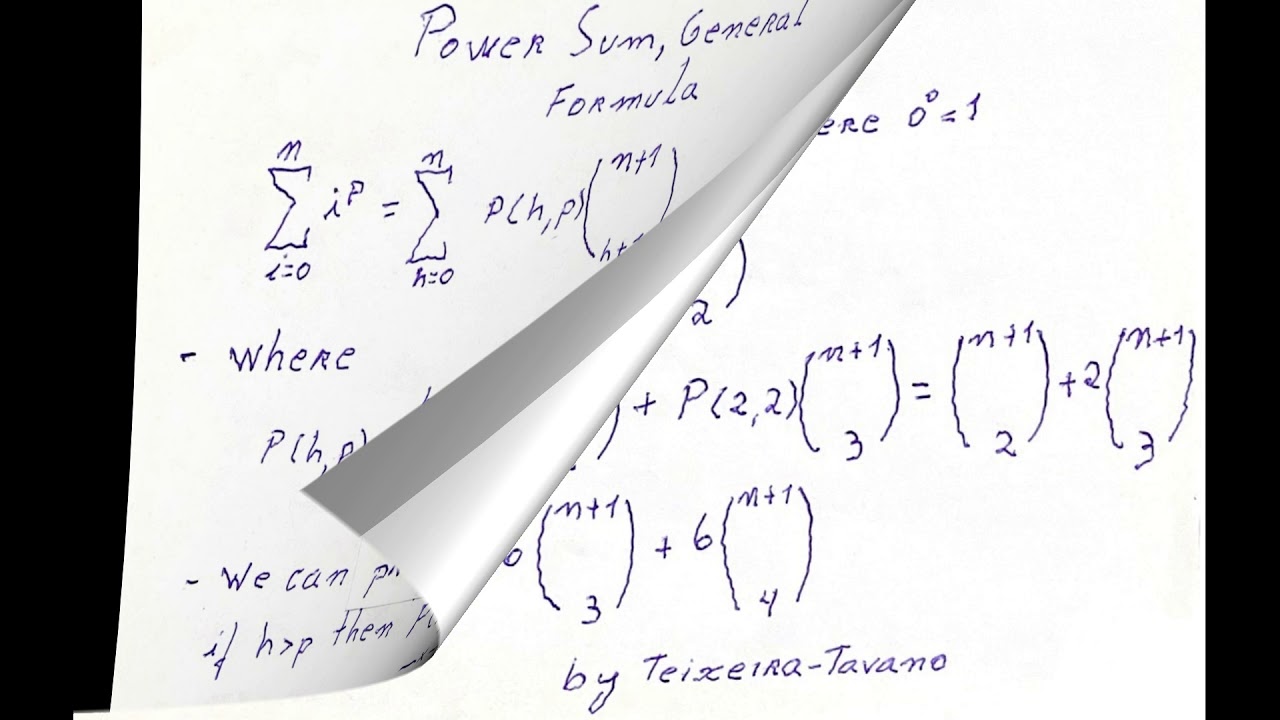 Power Sum, General
Formula
∑_{i=0}^{n} i^p = ∑_{h=0}^{n} P(h,p) (n+1
0^0 = 1
2)
- Where
P(h,p)
+ P(2,2) (n+1 3) = (n+1 2) + 2 (n+1 3)
(n+1 3) + 6 (n+1 4)
- We can
if h>p then
by Teixeira-Tavano